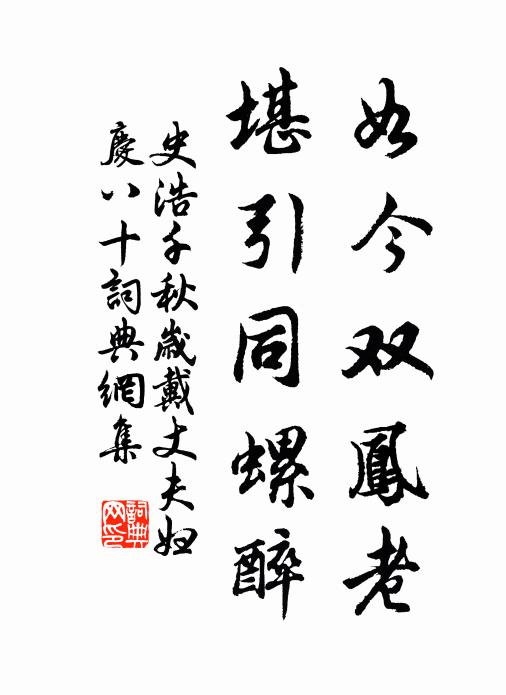 如今双鳳老
堪引同螺醉
史浩千秋歲戴丈夫妇
慶八十詞典網集
詞典网印